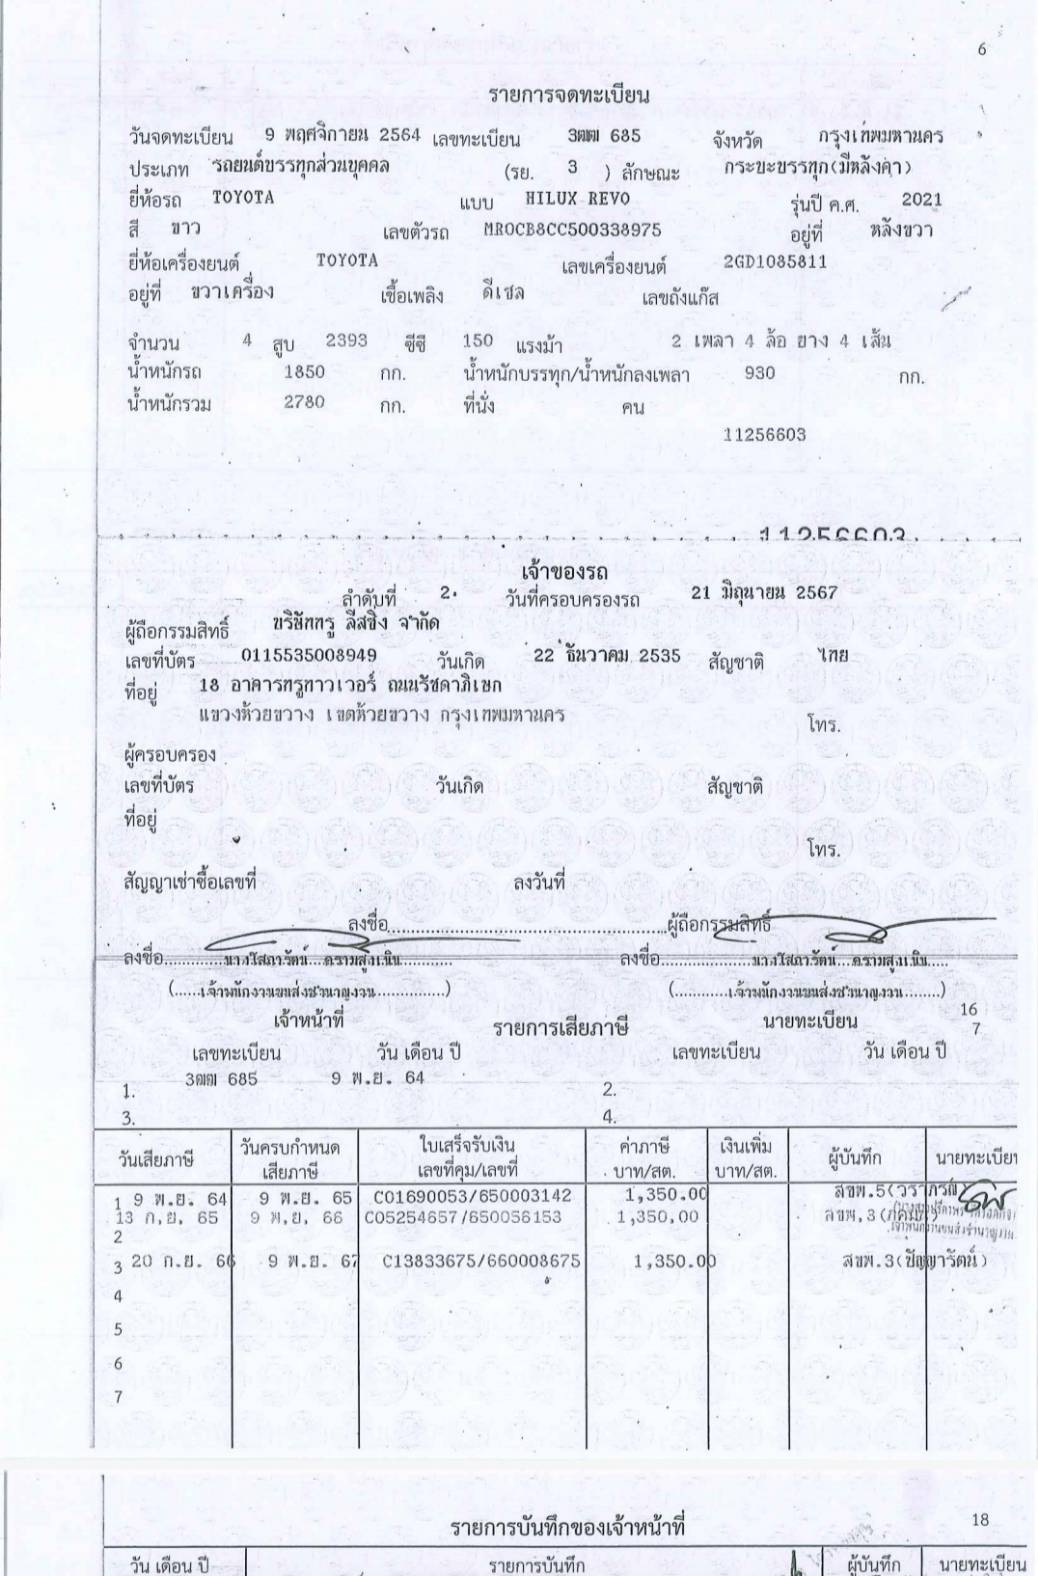 6
รายการจดทะเบียน
วันจดทะเบียน 9 พฤศจิกายน 2564 เลขทะเบียน 3ฒฒ 685 จังหวัด กรุงเทพมหานคร
ประเภท รถยนต์บรรทุกส่วนบุคคล (รย. 3 ) ลักษณะ กระบะบรรทุก(มีหลังคา)
ยี่ห้อรถ TOYOTA แบบ HILUX REVO รุ่นปี ค.ศ. 2021
สี ขาว เลขตัวรถ MR0CB8CC500338975 อยู่ที่ หลังขวา
ยี่ห้อเครื่องยนต์ TOYOTA เลขเครื่องยนต์ 2GD1085811
อยู่ที่ ขวาเครื่อง เชื้อเพลิง ดีเซล เลขถังแก๊ส
จำนวน 4 สูบ 2393 ซีซี 150 แรงม้า 2 เพลา 4 ล้อ ยาง 4 เส้น
น้ำหนักรถ 1850 กก. น้ำหนักบรรทุก/น้ำหนักลงเพลา 930 กก.
น้ำหนักรวม 2780 กก. ที่นั่ง คน
11256603
11256603
เจ้าของรถ
ลำดับที่ 2. วันที่ครอบครองรถ 21 มิถุนายน 2567
ผู้ถือกรรมสิทธิ์ บริษัททรู ลีสซิ่ง จำกัด
เลขที่บัตร 0115535008949 วันเกิด 22 ธันวาคม 2535 สัญชาติ ไทย
ที่อยู่ 18 อาคารทรูทาวเวอร์ ถนนรัชดาภิเษก
แขวงห้วยขวาง เขตห้วยขวาง กรุงเทพมหานคร โทร.
ผู้ครอบครอง
เลขที่บัตร วันเกิด สัญชาติ
ที่อยู่
โทร.
สัญญาเช่าซื้อเลขที่ ลงวันที่
ลงชื่อ ผู้ถือกรรมสิทธิ์
ลงชื่อ นางโสภารัตน์ ความสูงเนิน ลงชื่อ นางโสภารัตน์ ความสูงเนิน
(เจ้าพนักงานขนส่งชำนาญงาน) (เจ้าพนักงานขนส่งชำนาญงาน)
เจ้าหน้าที่ รายการเสียภาษี นายทะเบียน 16
7
เลขทะเบียน วัน เดือน ปี เลขทะเบียน วัน เดือน ปี
1. 3ฒฒ 685 9 พ.ย. 64 2.
3. 4.
วันเสียภาษี วันครบกำหนด เสียภาษี ใบเสร็จรับเงิน เลขที่คุม/เลขที่ ค่าภาษี บาท/สต. เงินเพิ่ม บาท/สต. ผู้บันทึก นายทะเบีย
1 9 พ.ย. 64 9 พ.ย. 65 C01690053/650003142 1,350.00 สขพ.5(วราภรณ์
13 ก.ย. 65 9 พ.ย. 66 C05254657/650056153 1,350.00 สขพ.3
2
3 20 ก.ย. 66 9 พ.ย. 67 C13833675/660008675 1,350.00 สขพ.3(ชัญญารัตน์)
4
5
6
7
รายการบันทึกของเจ้าหน้าที่ 18
วัน เดือน ปี รายการบันทึก ผู้บันทึก นายทะเบียน